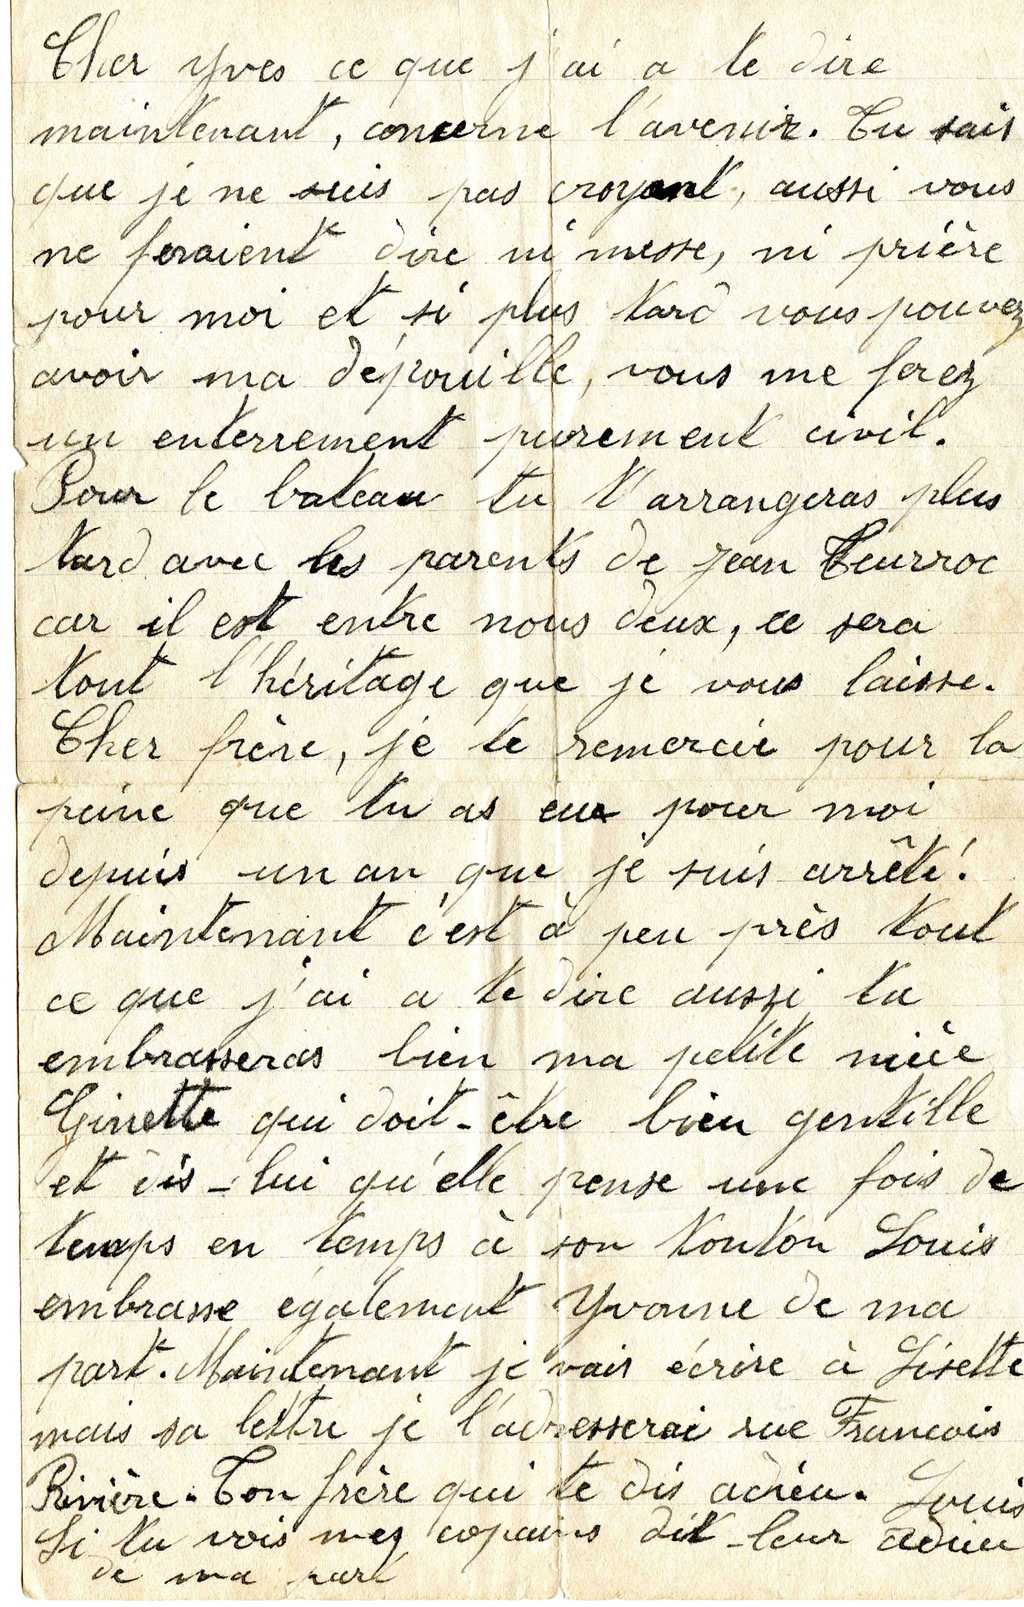 Cher Yves ce que j'ai a te dire
maintenant, concerne l'avenir. Tu sais
que je ne suis pas croyant, aussi vous
ne feraient dire ni messe, ni prière
pour moi et si plus tard vous pouvez
avoir ma dépouille, vous me ferez
un enterrement purement civil.
Pour le bateau tu t'arrangeras plus
tard avec les parents de Jean Teurroc
car il est entre nous deux, ce sera
tout l'héritage que je vous laisse.
Cher frère, je te remercie pour la
peine que tu as eue pour moi
depuis un an que je suis arrêté!
Maintenant c'est à peu près tout
ce que j'ai a te dire aussi tu
embrasseras bien ma petite nièce
Ginette qui doit-être bien gentille
et dis-lui qu'elle pense une fois de
temps en temps à son tonton Louis
embrasse également Yvonne de ma
part. Maintenant je vais écrire à Lisette
mais sa lettre je l'adresserai rue Francois
Rivière. Ton frère qui te dis adieu. Louis
Si tu vois mes copains dit-leur adieu
de ma part